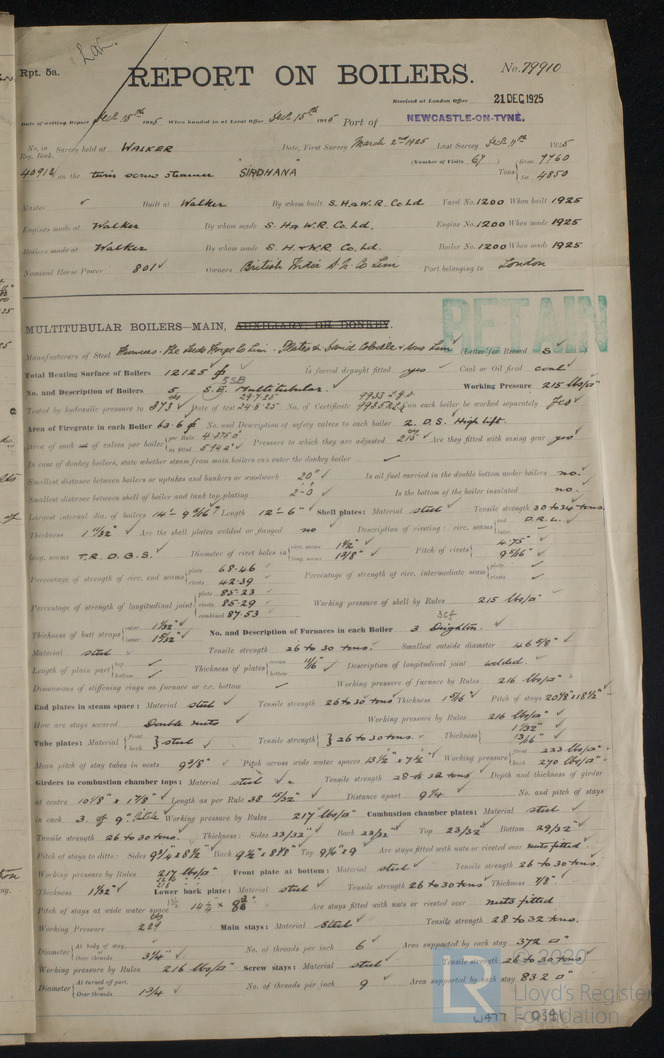 Lat.
Rpt. 5a.
REPORT ON BOILERS.
No. 79910
Received at London Office 21 DEC 1925
Date of writing Report Dec. 15th 1925 When handed in at Local Office Dec. 15th 1925 Port of NEWCASTLE-ON-TYNE.
No. in Reg. Book. Survey held at WALKER Date, First Survey March 2nd 1925 Last Survey Dec. 11th 1925
(Number of Visits 67) Gross 7760
40912 on the twin screw steamer "SIRDHANA" Tons Net 4850
Master ✓ Built at Walker By whom built S. H. & W. R. Co Ltd Yard No. 1200 When built 1925
Engines made at Walker By whom made S. H. & W. R. Co. Ltd. Engine No. 1200 When made 1925
Boilers made at Walker By whom made S. H. & W. R. Co. Ltd. Boiler No. 1200 When made 1925
Nominal Horse Power 801 ✓ Owners British India S. N. Co Lim Port belonging to London
MULTITUBULAR BOILERS—MAIN, AUXILIARY OR DONKEY.
RETAIN
Manufacturers of Steel Furnaces: The Leeds Forge Co Lim. Plates &c David Colville & Sons Lim (Letter for Record S)
Total Heating Surface of Boilers 12125 Is forced draught fitted yes ✓ Coal or Oil fired coal
5 SB
No. and Description of Boilers 5, S.E. Multitubular. Working Pressure 215 lbs
Tested by hydraulic pressure to 373 Date of test 24.8.25 No. of Certificate Can each boiler be worked separately Yes
29.7.25
Area of Firegrate in each Boiler 63.6 No. and Description of safety valves to each boiler 2. D.S. High lift.
Area of each set of valves per boiler per Rule as fitted 5.94 Pressure to which they are adjusted 215 Are they fitted with easing gear yes
In case of donkey boilers, state whether steam from main boilers can enter the donkey boiler ✓
Smallest distance between boilers or uptakes and bunkers or woodwork 20" ✓ Is oil fuel carried in the double bottom under boilers no.
Smallest distance between shell of boiler and tank top plating 2'-0 ✓ Is the bottom of the boiler insulated no.
Largest internal dia. of boilers 14'-9 5/16" Length 12'-6" Shell plates: Material steel Tensile strength 30 to 34 tons.
Thickness 1 11/32" Are the shell plates welded or flanged no Description of riveting: circ. seams end D.R.L. inter.
long. seams T.R. D.B.S. Diameter of rivet holes in circ. seams 1 1/2" long. seams 1 3/8" Pitch of rivets 4.75" 9 5/16"
Percentage of strength of circ. end seams plate 68.46 rivets 42.39 Percentage of strength of circ. intermediate seam plate rivets
Percentage of strength of longitudinal joint plate 85.23 rivets 85.29 combined 87.53 Working pressure of shell by Rules 215 lbs
Thickness of butt straps outer 1 1/32" inner 1 5/32" No. and Description of Furnaces in each Boiler 3 Deighton
Material steel Tensile strength 26 to 30 tons. Smallest outside diameter 46 5/8"
Length of plain part top bottom Thickness of plates crown bottom 11/16" Description of longitudinal joint welded.
Dimensions of stiffening rings on furnace or c.c. bottom Working pressure of furnace by Rules 216 lbs
End plates in steam space: Material steel Tensile strength 26 to 30 tons Thickness 1 5/16" Pitch of stays 20 1/8 x 18 1/2"
How are stays secured Double nuts Working pressure by Rules 216 lbs
Tube plates: Material front back } steel Tensile strength } 26 to 30 tons. Thickness 1 1/32" 13/16"
Mean pitch of stay tubes in nests 9 5/8" Pitch across wide water spaces 13 1/2" x 7 1/2" Working pressure front 222 lbs back 270 lbs
Girders to combustion chamber tops: Material steel Tensile strength 28 to 32 tons Depth and thickness of girder
at centre 10 1/8" x 1 7/8" Length as per Rule 38 15/32" Distance apart 9 1/4 No. and pitch of stays
in each 3 of 9" Pitch Working pressure by Rules 217 lbs Combustion chamber plates: Material steel
Tensile strength 26 to 30 tons. Thickness: Sides 23/32" Back 23/32" Top 23/32 Bottom 29/32"
Pitch of stays to ditto: Sides 9 3/4 x 8 1/2" Back 9 1/2" x 8 7/8" Top 9 1/4 x 9 Are stays fitted with nuts or riveted over nuts fitted.
Working pressure by Rules 217 lbs Front plate at bottom: Material steel Tensile strength 26 to 30 tons.
Thickness 1 1/32" Lower back plate: Material steel Tensile strength 26 to 30 tons Thickness 7/8"
Pitch of stays at wide water space 14 1/4" x Are stays fitted with nuts or riveted over nuts fitted
Working Pressure 229 Main stays: Material Steel Tensile strength 28 to 32 tons.
Diameter At body of stay, Over threads 3 1/4" No. of threads per inch 6 Area supported by each stay 372
Working pressure by Rules 216 lbs Screw stays: Material steel Tensile strength 26 to 30 tons
Diameter At turned off part, Over threads 1 3/4 No. of threads per inch 9 Area supported by each stay 83.2
© 2020
LR
Lloyd's Register
Foundation
W477 - 0191